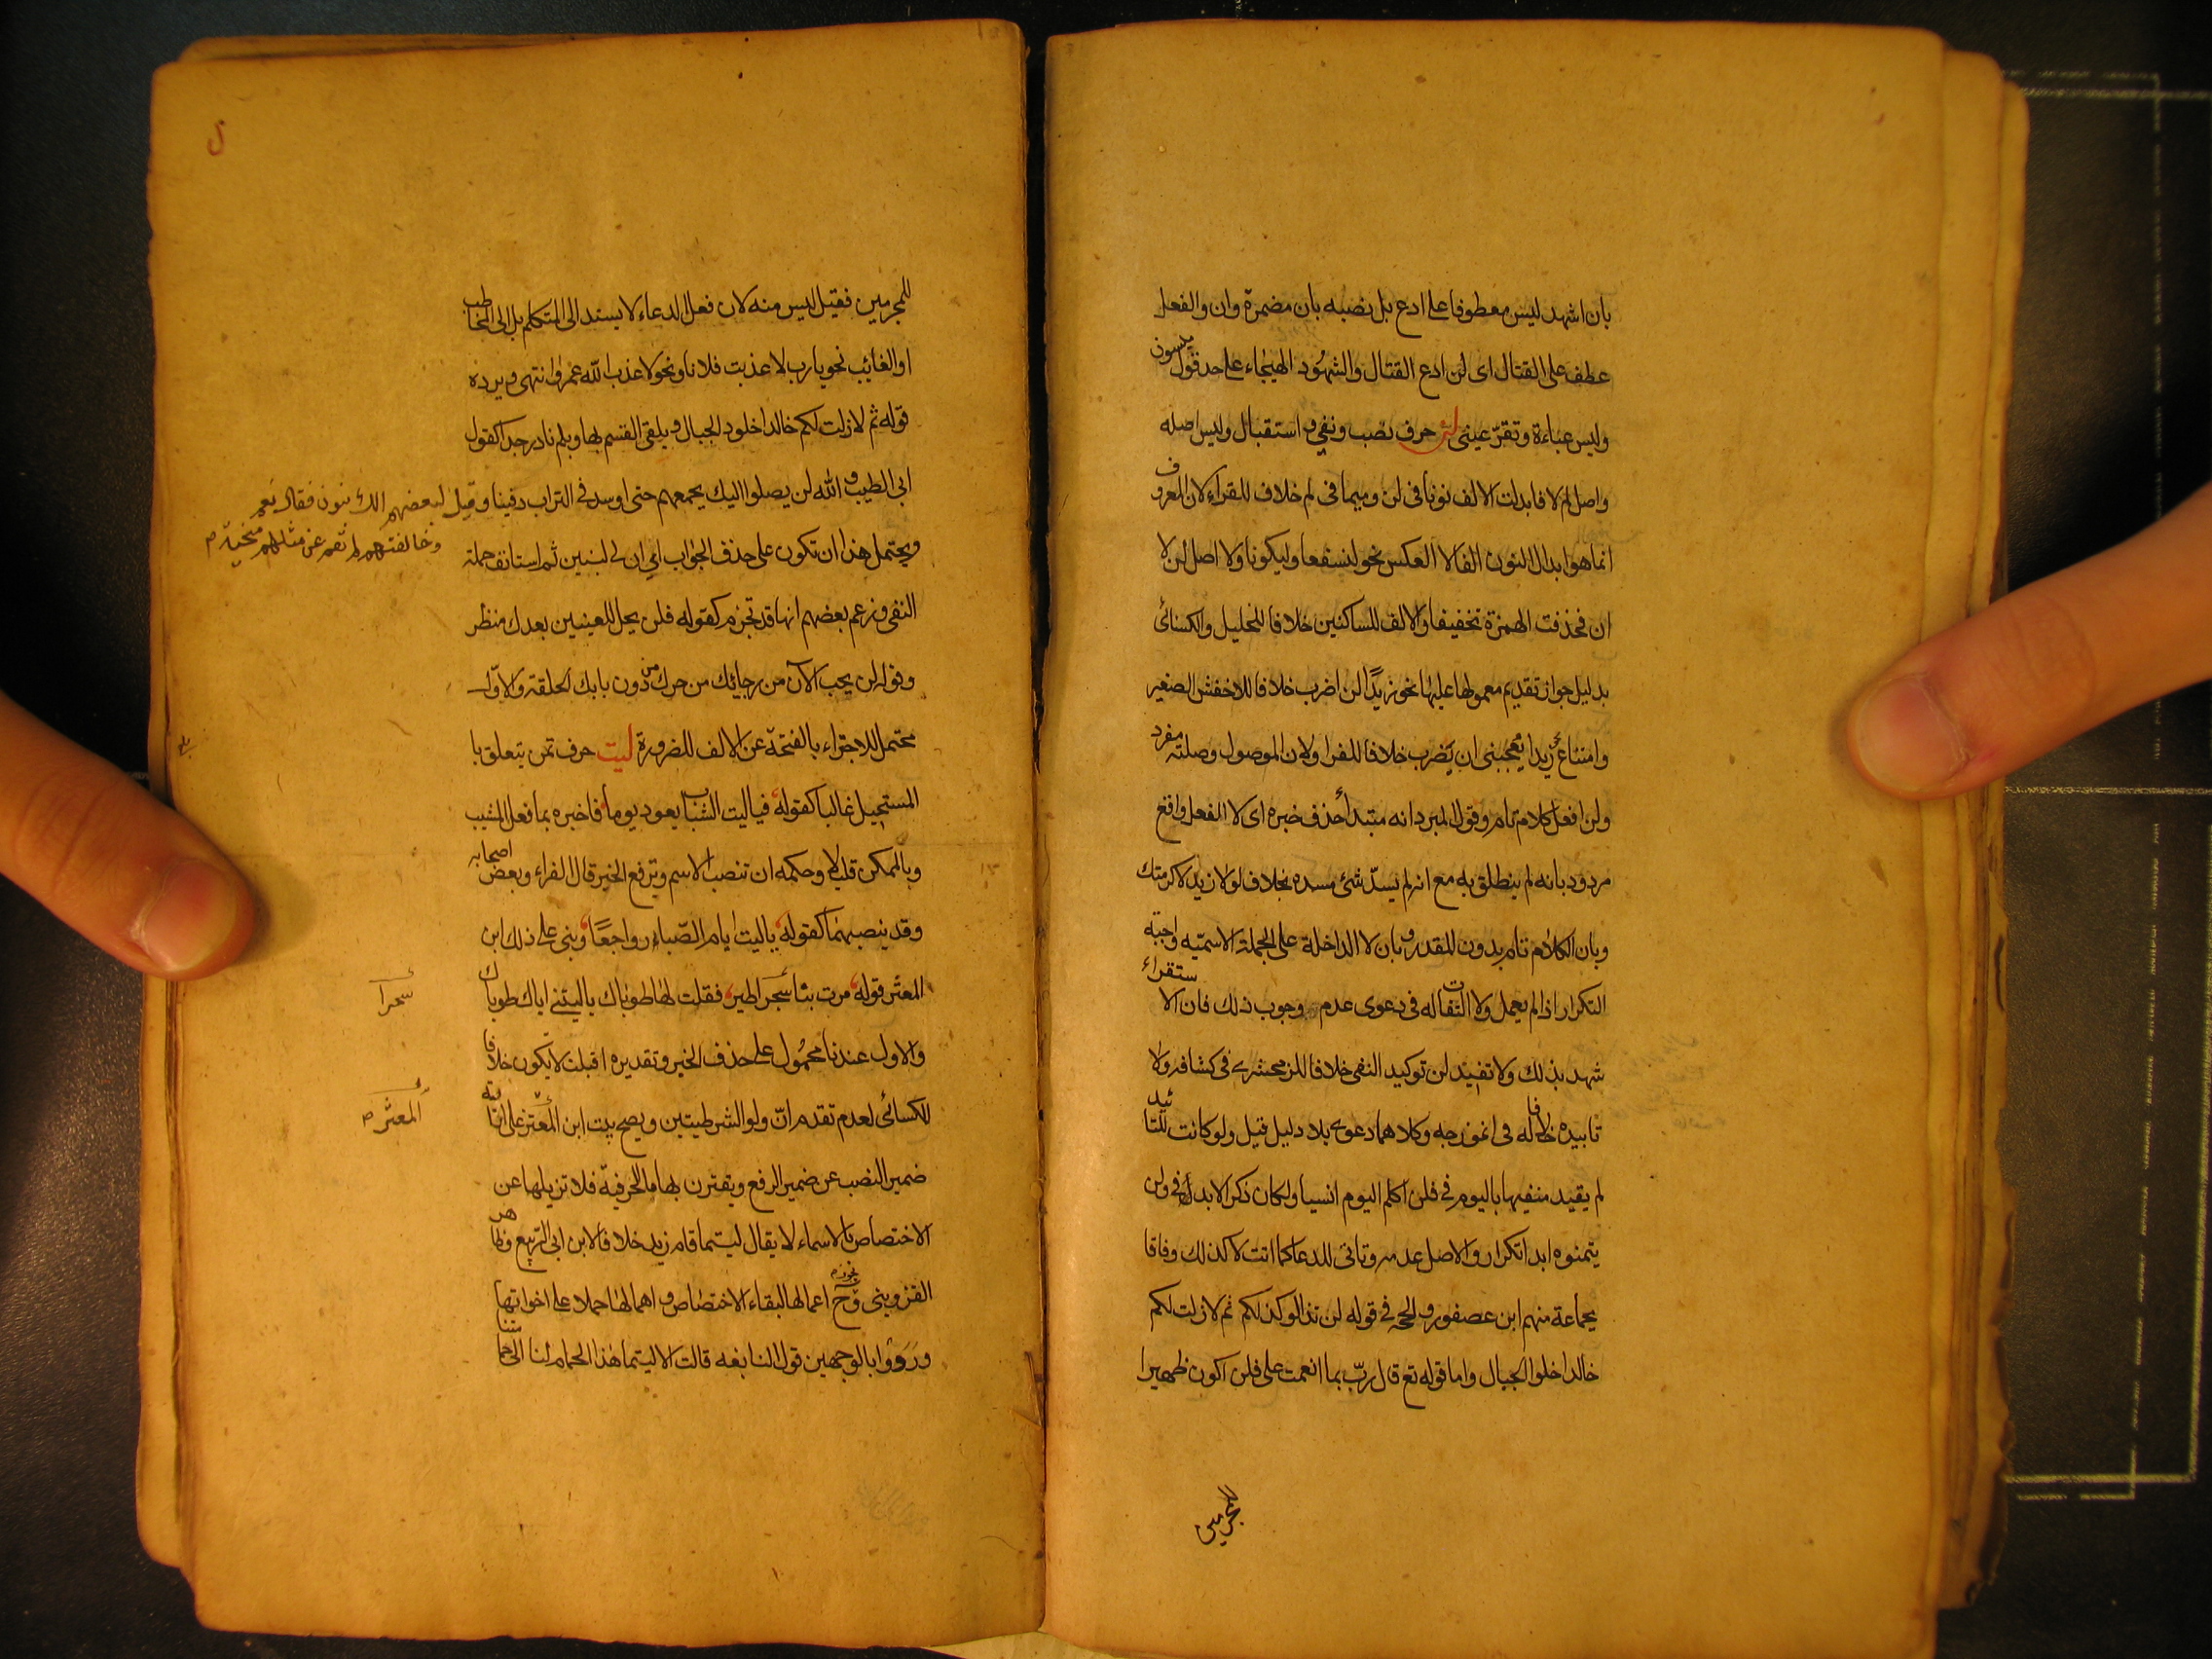 بان اشهد ليس معطوفا على ادع بل نصبه بان مضمرة وان والفعل
عطف على القتال اى لن ادع القتال والشهود الهيجاء على حد قول ميسون
ولبس عباءة وتقرّ عينى لن حرف نصب ونفى و استقبال وليس اصله
واصل لم لا فابدلت الالف نونا فى لن وميما فى لم خلاف للفراء لان المعروف
انما هو ابدال النون الفا لا العكس نحو لنسفعا وليكونا ولا اصل لن لا
ان فحذفت الهمزة تخفيفا والالف للساكنين خلافا للخليل والكسائى
بدليل جواز تقديم معمولها عليها نحو زيدًا لن اضرب خلافا للاخفش الصغير
وامتناع زيدا يعجبنى ان يضرب خلافا للفرا ولان الموصول وصلته مفرد
ولن افعل كلام تام وقول المبرد انه مبتدأ حذف خبره اى لا الفعل واقع
مردود بانه لم ينطلق به مع انه لم يسدّ شئ مسده بخلاف لولا زيد لاكرمتك
وبان الكلام تام بدون المقدر وبان لا الداخلة على الجملة الاسميّه واجبة
التكرار اذا لم يعمل ولا التفات له فى دعوى عدم وجوب ذلك فان الاستقراء
شهد بذلك ولا تفيد لن توكيد النفى خلافا للزمحشرى فى كشافه ولا
تابيده خلافا له فى انموزجه وكلاهما دعوى بلا دليل قيل ولو كانت للتائيد
لم يقيد منفيها باليوم فى فلن اكلم اليوم انسيا ولكان ذكر الابد فى ولن
يتمنوه ابدا تكرار والاصل عدمه وتاتى للدعا كما اتت لا كذلك وفاقا
بجماعة منهم ابن عصفور والحجة فى قوله لن تزالو كذلكم ثم لازلت لكم
خالدا خلوا الجبال واما قوله تع قال ربّ بما انعمت على فلن اكون ظهيرا
للمجرمين
للمجرمين فقيل ليس منه لان فعل الدعاء لا يسند الى المتكلم بل الى المخاطب
او الغائب نحو يا رب لا عذبت فلانا ونحو لا عذب الله عمرا انتهى ويرده
قوله ثم لازلت لكم خالدا خلود الجبال ويلقى القسم بها وبلم نادر جدا كقول
ابى الطيب والله لن يصلوا اليك بجمعهم حتى اوسد فى التراب دفينا وقيل لبعضهم الك بنون فقال نعم
وخالفتهم لم تقم عن مثلهم منجية م
ويحتمل هذا ان تكون على حذف الجواب اى ان لى لبنين ثم استانف جملة
النفى وزعم بعضهم انها قد تجزم كقوله فلن يحل للعينين بعدك منظر
وقوله لن يخب الآن من رجائك من حرك من دون بابك الحلقة والاول
محتمل للاجتزاء بالفتحة عن الالف للضرورة ليت حرف تمن يتعلق با
المستحيل غالبا كقوله فياليت الشباب يعود يوما فاخبره بما فعل المشيب
وبالممكن قليلا وحكمه ان تنصب الاسم وترفع الخبر قال الفراء وبعض اصحابه
وقد ينصبهما كقوله ياليت ايام الصّباء رواجعًا وبنى على ذلك ابن
المعتز قوله مرت بنا سحرا طير فقلت لها طوباك ياليتنى اياك طوباك
سحرا
والاول عندنا محمول على حذف الخبر وتقديره اقبلت لا يكون خلافا
للكسائى لعدم تقدم انّ ولو الشرطيتين ويصح بيت ابن المعتز على انابة
المعتز م
ضمير النصب عن ضمير الرفع ويقترن بها ما الحرفية فلا تزيلها عن
الاختصاص بالاسماء لا يقال ليتما قام زيد خلافا لابن ابى الربيع وطاهر
القزوينى وح نجوز م اعمالها لبقاء الاختصاص و اهمالها حملا على اخواتها
ورووا بالوجهين قول النابغه قالت الا ليتما هذا الحمام لنا الى حمامتنا